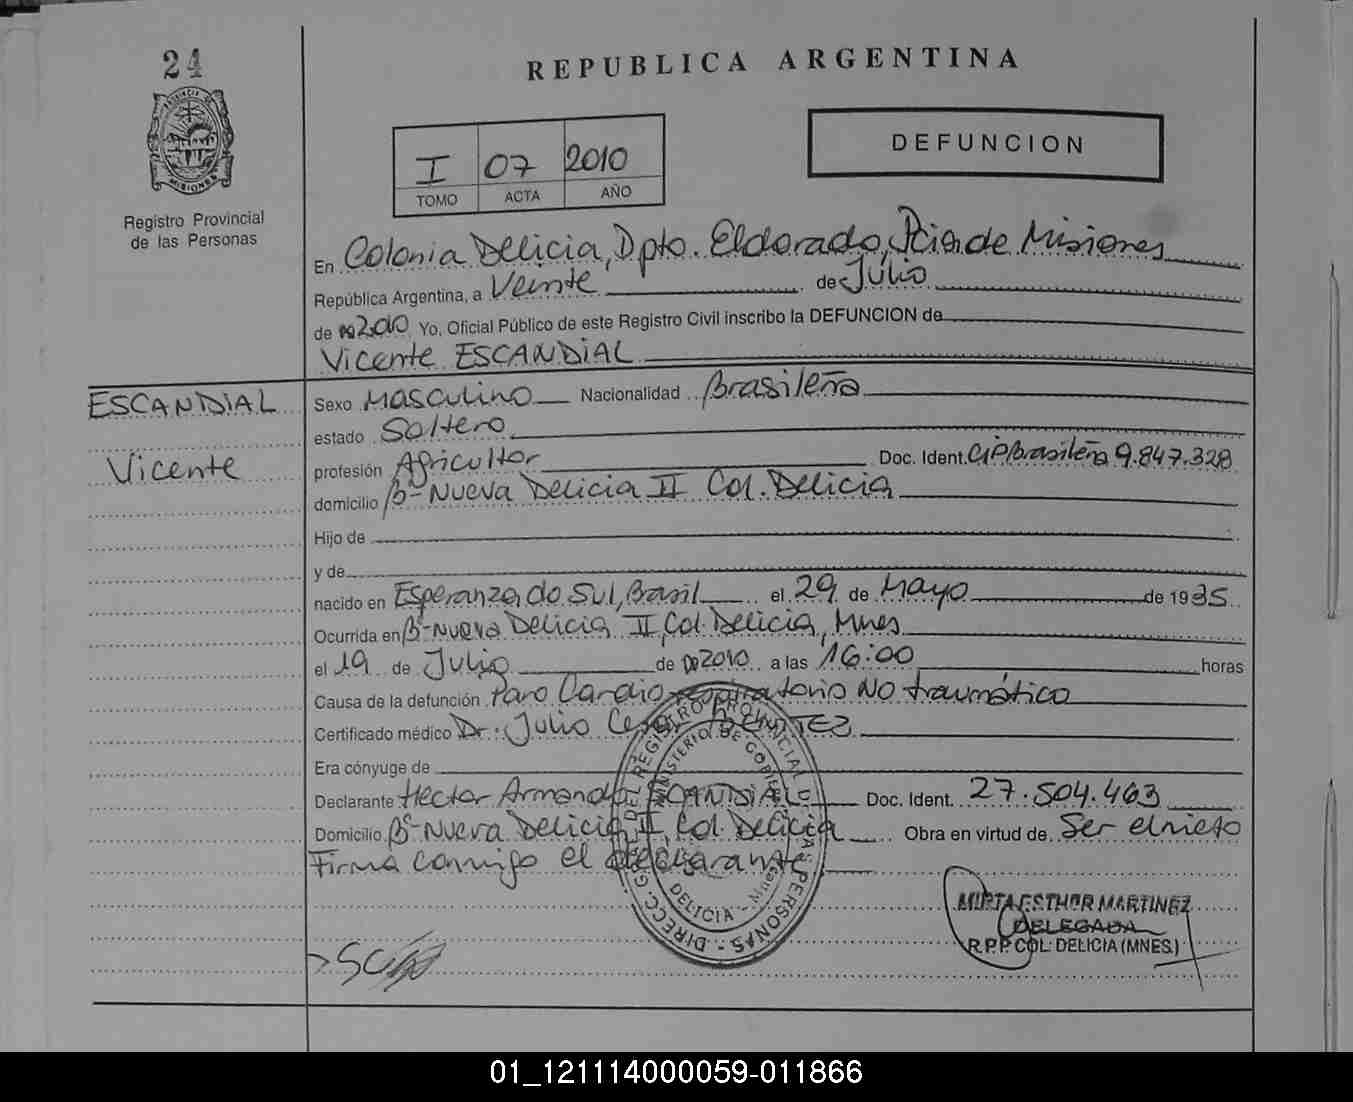 24
REPUBLICA ARGENTINA
PROVINCIA DE MISIONES
Registro Provincial
de las Personas
I 07 2010
TOMO ACTA AÑO
DEFUNCION
En Colonia Delicia, Dpto. Eldorado, Pcia. de Misiones
República Argentina, a Veinte de Julio
de 2010 Yo, Oficial Público de este Registro Civil inscribo la DEFUNCION de
Vicente ESCANDIAL
ESCANDIAL
Vicente
Sexo Masculino Nacionalidad Brasileña
estado Soltero
profesión Agricultor Doc. Ident. CIP/Brasileña 9.847.328
domicilio Bº Nueva Delicia II Col. Delicia
Hijo de
y de
nacido en Esperanza do Sul, Brasil el 29 de Mayo de 1935
Ocurrida en Bº Nueva Delicia II, Col. Delicia, Mnes
el 19 de Julio de 2010 a las 16:00 horas
Causa de la defunción Paro Cardio respiratorio No traumático
Certificado médico Dr. Julio
Era cónyuge de
Declarante Hector Armando ESCANDIAL Doc. Ident. 27.504.463
Domicilio Bº Nueva Delicia II, Col. Delicia Obra en virtud de Ser el nieto
Firma conmigo el declarante
DIRECC. GRAL. DEL REGISTRO PROVINCIAL DE LAS PERSONAS
MINISTERIO DE GOBIERNO
DELICIA - Mnes
MIRTA ESTHER MARTINEZ
DELEGADA
R.P.P. COL. DELICIA (MNES.)
01_121114000059-011866